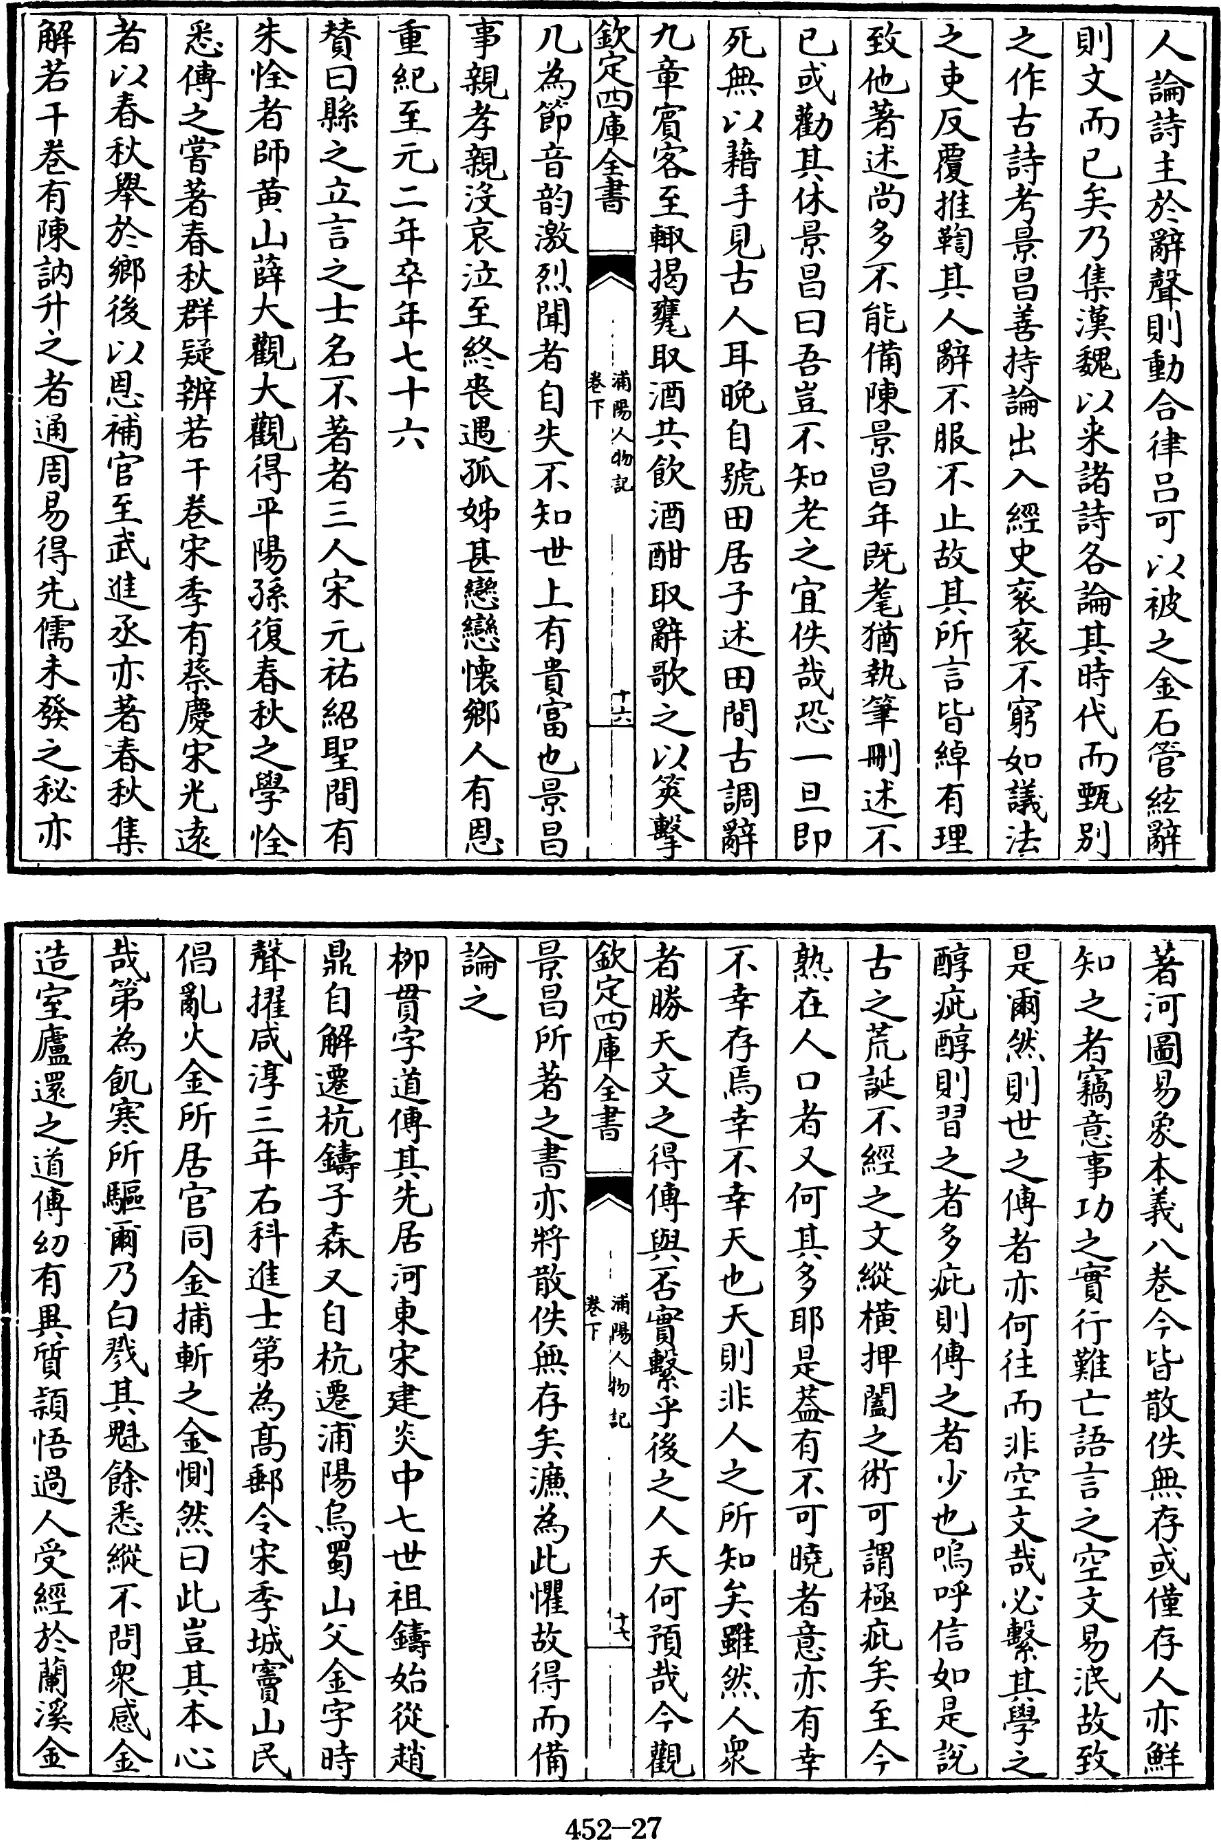 人論詩主於辭聲則動合律呂可以被之金石管絃辭
則文而已矣乃集漢魏以来諸詩各論其時代而甄别
之作古詩考景昌善持論出入經史衮衮不窮如議法
之吏反覆推鞫其人辭不服不止故其所言皆綽有理
致他著述尚多不能備陳景昌年既耄猶執筆刪述不
已或勸其休景昌曰吾豈不知老之宜佚哉恐一旦即
死無以藉手見古人耳晩自號田居子述田間古調辭
九章賓客至輙揭甕取酒共飲酒酣取辭歌之以筴擊
欽定四庫全書
浦陽人物記
卷下
十六
几為節音韵激烈聞者自失不知世上有貴富也景昌
事親孝親沒哀泣至終喪遇孤姊甚戀戀懐鄉人有恩
重紀至元二年卒年七十六
賛曰縣之立言之士名不著者三人宋元祐紹聖間有
朱恮者師黄山薛大觀大觀得平陽孫復春秋之學恮
悉傳之嘗著春秋群疑辨若干卷宋季有蔡慶宋光逺
者以春秋舉於鄉後以恩補官至武進丞亦著春秋集
解若干卷有陳訥升之者通周易得先儒未發之秘亦
著河圖易象本義八卷今皆散佚無存或僅存人亦鮮
知之者竊意事功之實行難亡語言之空文易泯故致
是爾然則世之傳者亦何往而非空文哉必繫其學之
醇疵醇則習之者多疵則傳之者少也嗚呼信如是說
古之荒誕不經之文縱横押闔之術可謂極疵矣至今
熟在人口者又何其多耶是葢有不可曉者意亦有幸
不幸存焉幸不幸天也天則非人之所知矣雖然人衆
者勝天文之得傳與否實繫乎後之人天何預哉今觀
欽定四庫全書
浦陽人物記
卷下
十七
景昌所著之書亦將散佚無存矣濂為此懼故得而備
論之
栁貫字道傳其先居河東宋建炎中七世祖鑄始從趙
鼎自解遷杭鑄子森又自杭遷浦陽烏蜀山父金字時
聲擢咸淳三年右科進士第為髙郵令宋季城竇山民
倡亂火金所居官同金捕斬之金惻然曰此豈其本心
哉第為飢寒所驅爾乃白戮其魁餘悉縱不問衆感金
造室廬還之道傳幼有異質頴悟過人受經於蘭溪金
452-27